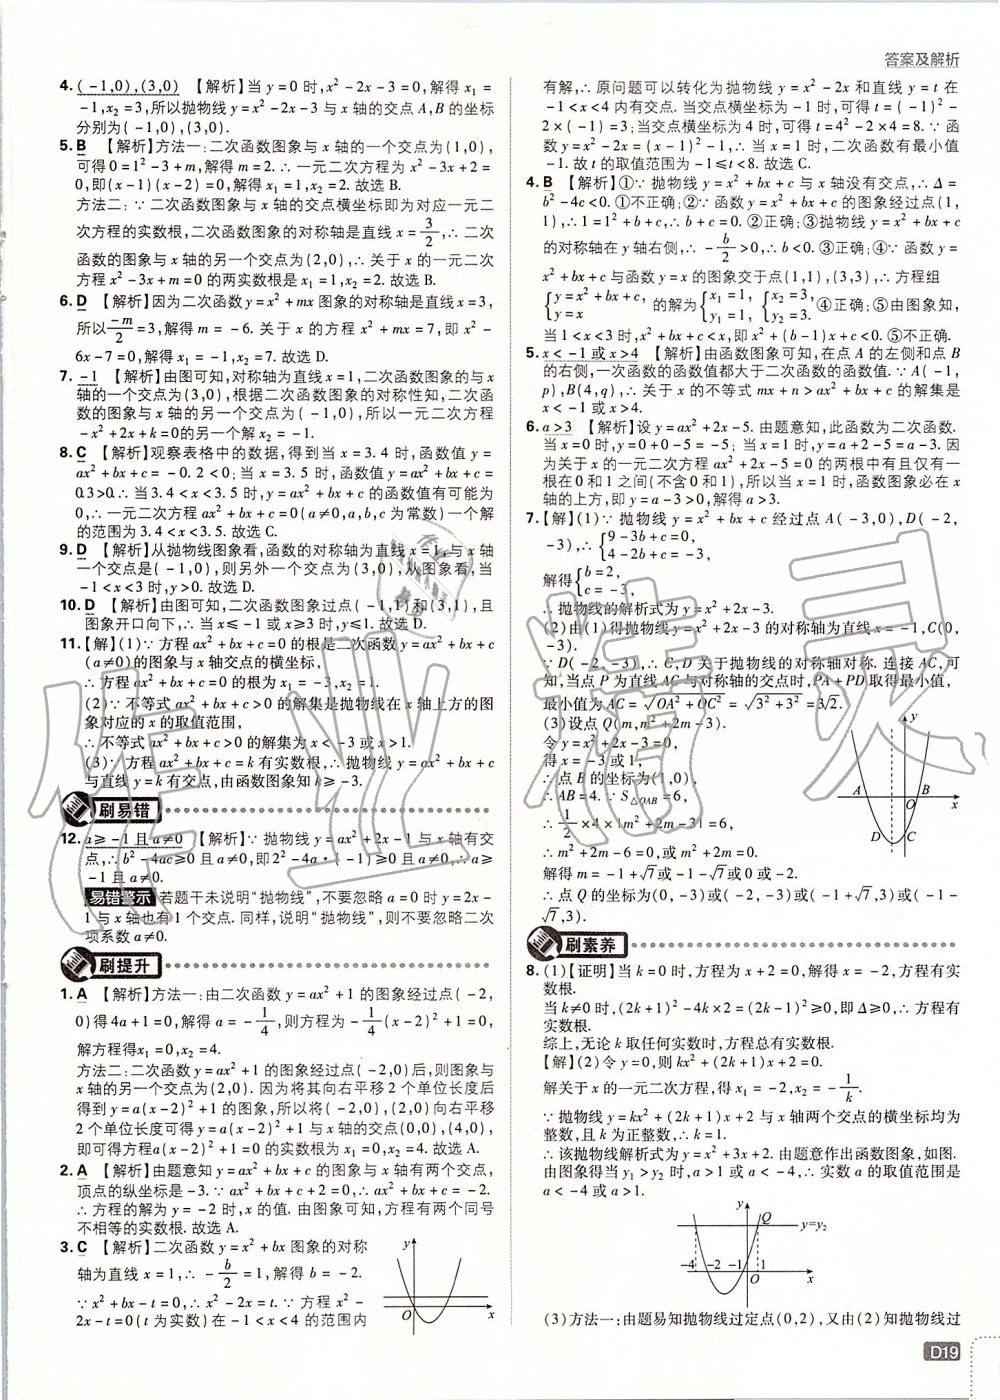 答案及解析
4. (-1,0),(3,0) 【解析】当 y=0 时,x²-2x-3=0,解得 x₁=
-1,x₂=3,所以抛物线 y=x²-2x-3 与 x 轴的交点 A,B 的坐标
分别为(-1,0),(3,0).
5. B 【解析】方法一:二次函数图象与 x 轴的一个交点为(1,0),
可得 0=1²-3+m,解得 m=2.∴一元二次方程为 x²-3x+2=
0,即(x-1)(x-2)=0,解得 x₁=1,x₂=2.故选 B.
方法二:∵二次函数图象与 x 轴的交点横坐标即为对应一元二
次方程的实数根,二次函数图象的对称轴是直线 x=3/2,∴二次
函数图象与 x 轴的另一个交点为(2,0),∴关于 x 的一元二次
方程 x²-3x+m=0 的两实数根是 x₁=1,x₂=2.故选 B.
6. D 【解析】因为二次函数 y=x²+mx 图象的对称轴是直线 x=3,
所以 -m/2=3,解得 m=-6.关于 x 的方程 x²+mx=7,即 x²-
6x-7=0,解得 x₁=-1,x₂=7.故选 D.
7. -1 【解析】由图可知,对称轴为直线 x=1,二次函数图象的与 x
轴的一个交点为(3,0),根据二次函数图象的对称性知,二次函
数的图象与 x 轴的另一个交点为(-1,0),所以一元二次方程
-x²+2x+k=0的另一个解 x₂=-1.
8. C 【解析】观察表格中的数据,得到当 x=3.4 时,函数值 y=
ax²+bx+c=-0.2<0;当 x=3.5 时,函数值 y=ax²+bx+c=
0.3>0.∴当 3.4<x<3.5 时,y=ax²+bx+c 的函数值有可能为
0,∴一元二次方程 ax²+bx+c=0(a≠0,a,b,c 为常数)一个解
的范围为 3.4<x<3.5.故选 C.
9. D 【解析】从抛物线图象看,函数的对称轴为直线 x=1,与 x 轴
一个交点是(-1,0),则另外一个交点为(3,0),从图象看,当
-1<x<3 时,y>0.故选 D.
10. D 【解析】由图可知,二次函数图象过点(-1,1)和(3,1),且
图象开口向下,∴当 x≤-1 或 x≥3 时,y≤1.故选 D.
11.【解】(1)∵方程 ax²+bx+c=0 的根是二次函数 y=ax²+bx+c
(a≠0)的图象与 x 轴交点的横坐标,
∴方程 ax²+bx+c=0 的根为 x₁=-3,x₂=1.
(2)∵不等式 ax²+bx+c>0 的解集是抛物线在 x 轴上方的图
象对应的 x 的取值范围,
∴不等式 ax²+bx+c>0 的解集为 x<-3 或 x>1.
(3)∵方程 ax²+bx+c=k 有实数根,∴抛物线 y=ax²+bx+c
与直线 y=k 有交点,由函数图象知 k≥-3.
刷易错
12. a≥-1 且 a≠0 【解析】∵抛物线 y=ax²+2x-1 与 x 轴有交
点,∴b²-4ac≥0 且 a≠0,即2²-4a·(-1)≥0且 a≠0,∴a≥
-1 且 a≠0.
易错警示 若题干未说明“抛物线”,不要忽略 a=0 时 y=2x-
1 与 x 轴也有 1 个交点.同样,说明“抛物线”,则不要忽略二次
项系数 a≠0.
刷提升
1. A 【解析】方法一:由二次函数 y=ax²+1 的图象经过点(-2,
0)得 4a+1=0,解得 a=-1/4,则方程为-1/4(x-2)²+1=0,
解方程得x₁=0,x₂=4.
方法二:二次函数 y=ax²+1 的图象经过点(-2,0)后,则图象与
x 轴的另一个交点为(2,0).因为将其向右平移 2 个单位长度后
得到 y=a(x-2)²+1 的图象,所以将(-2,0),(2,0)向右平移
2 个单位长度可得 y=a(x-2)²+1 与 x 轴的交点(0,0),(4,0),
即可得方程 a(x-2)²+1=0 的实数根为 x₁=0,x₂=4.故选 A.
2. A 【解析】由题意知 y=ax²+bx+c 的图象与 x 轴有两个交点,
顶点的纵坐标是-3.∵ax²+bx+c+2=0,∴ax²+bx+c=-2.
∴方程的解为 y=-2 时,x 的值.由图象可知,方程有两个同号
不相等的实数根.故选 A.
3. C 【解析】二次函数 y=x²+bx 图象的对称
轴为直线 x=1,∴-b/2=1,解得 b=-2.
∵x²+bx-t=0,∴x²-2x=t.∵方程 x²+
bx-t=0(t 为实数)在-1<x<4 的范围内
y
O
x
有解,∴原问题可以转化为抛物线 y=x²-2x 和直线 y=t 在
-1<x<4 内有交点.当交点横坐标为-1 时,可得 t=(-1)²-
2×(-1)=3;当交点横坐标为 4 时,可得 t=4²-2×4=8.∵函
数 y=x²-2x=(x-1)²-1,∴当 x=1 时,二次函数有最小值
-1.故 t 的取值范围为-1≤t<8.故选 C.
4. B 【解析】①∵抛物线 y=x²+bx+c 与 x 轴没有交点,∴Δ=
b²-4c<0.①不正确;②∵函数 y=x²+bx+c 的图象经过点(1,
1),∴1=1²+b+c,∴b+c=0.②正确;③抛物线 y=x²+bx+c
的对称轴在 y 轴右侧,∴-b/2>0,∴b<0.③正确;④∵函数 y=
x²+bx+c 与函数 y=x 的图象交于点(1,1),(3,3),∴方程组
{y=x²+bx+c, y=x 的解为{x₁=1, y₁=1, {x₂=3, y₂=3. ④正确;⑤由图象知,
当 1<x<3 时,x²+bx+c<x,即 x²+(b-1)x+c<0.⑤不正确.
5. x<-1 或 x>4 【解析】由函数图象可知,在点 A 的左侧和点 B
的右侧,一次函数的函数值都大于二次函数的函数值.∵A(-1,
p),B(4,q),∴关于 x 的不等式 mx+n>ax²+bx+c 的解集是
x<-1 或 x>4.
6. a>3 【解析】设 y=ax²+2x-5.由题意知,此函数为二次函数.
当 x=0 时,y=0+0-5=-5;当 x=1 时,y=a+2-5=a-3.因
为关于 x 的一元二次方程 ax²+2x-5=0 的两根中有且仅有一
根在 0 和 1 之间(不含 0 和 1),所以当 x=1 时,函数图象必在 x
轴的上方,即 y=a-3>0,解得 a>3.
7.【解】(1)∵抛物线 y=x²+bx+c 经过点 A(-3,0),D(-2,
-3),∴{9-3b+c=0, 4-2b+c=-3,
解得{b=2, c=-3,
∴抛物线的解析式为 y=x²+2x-3.
(2)由(1)得抛物线 y=x²+2x-3 的对称轴为直线 x=-1,C(0,
-3).
∵D(-2,-3),∴C,D 关于抛物线的对称轴对称.连接 AC,可
知,当点 P 为直线 AC 与对称轴的交点时,PA+PD 取得最小值,
最小值为 AC=√OA²+OC²=√3²+3²=3√2.
(3)设点 Q(m,m²+2m-3).
令 y=x²+2x-3=0,
得 x=-3 或 1,
∴点 B 的坐标为(1,0),
∴AB=4.∵S△QAB=6,
∴1/2×4×|m²+2m-3|=6,
∴m²+2m-6=0 或 m²+2m=0,
解得 m=-1+√7或-1-√7或 0 或-2,
∴点 Q 的坐标为(0,-3)或(-2,-3)或(-1+√7,3)或(-1-
√7,3).
y
A
O
B
x
D
C
刷素养
8.(1)【证明】当 k=0 时,方程为 x+2=0,解得 x=-2,方程有实
数根.
当 k≠0 时,(2k+1)²-4k×2=(2k-1)²≥0,即Δ≥0,∴方程有
实数根.
综上,无论 k 取任何实数时,方程总有实数根.
【解】(2)令 y=0,则 kx²+(2k+1)x+2=0.
解关于 x 的一元二次方程,得 x₁=-2,x₂=-1/k.
∵抛物线 y=kx²+(2k+1)x+2 与 x 轴两个交点的横坐标均为
整数,且 k 为正整数,∴k=1.
∴该抛物线解析式为 y=x²+3x+2.由题意作出函数图象,如图.
由图象得当 y₁>y₂ 时,a>1 或 a<-4,∴实数 a 的取值范围是
a<-4 或 a>1.
y
Q
y=y₂
-4
-2
-1
O
1
x
(3)方法一:由题易知抛物线过定点(0,2),又由(2)知抛物线过
D19
作业精灵